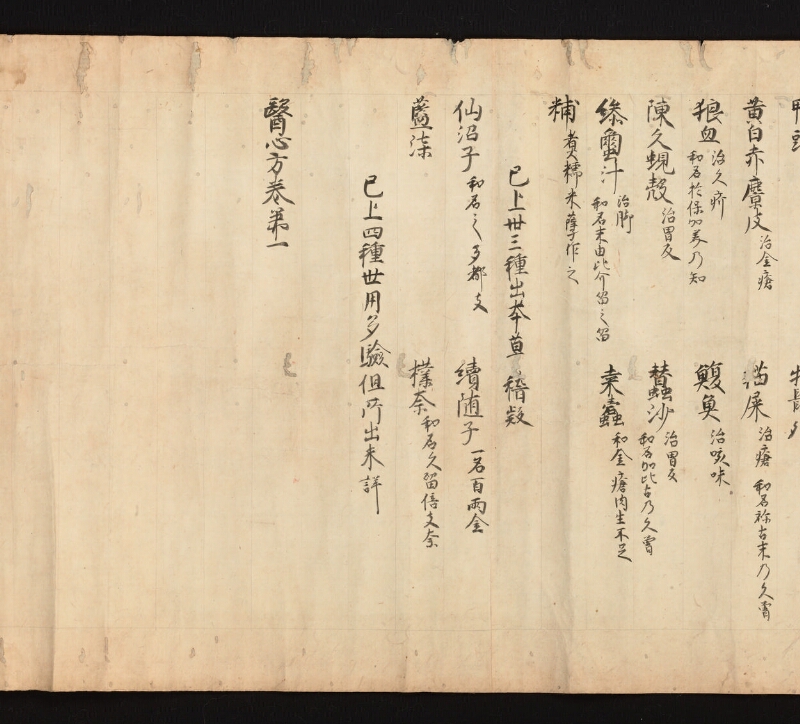 黄白赤麞皮 治金瘡 猫屎 治瘡 和名祢古末乃久曽
狼血 治久疥 和名於保加美乃知 鰒魚 治咳味
陳久蜆殻 治胃反 蠶沙 治胃反 和名加比古乃久曽
蚕蠒汁 治脚 和名末由比介留之留 桒蠹 和金瘡肉生不足
糒 煮糯米蘖作之
已上卅三種出本草 稽疑
仙沼子 和名之多都支 續随子 一名百兩金
藍柒 檏奈 和名久留倍支奈
已上四種世用多驗但所出未詳
醫心方巻第一